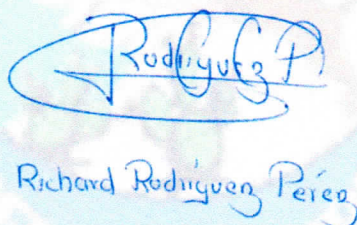 Rodriguez P
Richard Rodriguez Perez